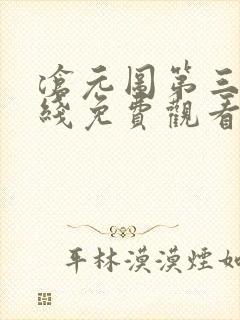 滄元图第三
綫免費觀看
平林漠漠煙如